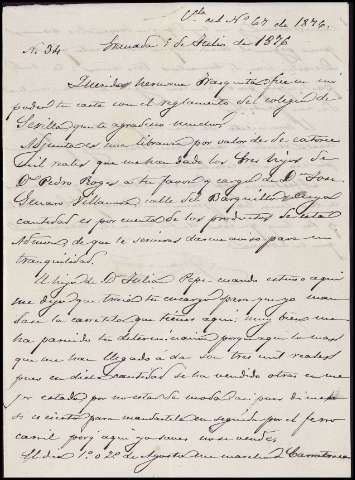 Vta al Nº 67 de 1876.
Nº 34 Granada 5 de Julio de 1876
Querido hermano Frasquito: fue en mi
poder tu carta con el reglamento del colegio de
Sevilla que te agradezco mucho.
Adjunta es una libranza por valor de de catorce
mil reales que me han dado los tres hijos de
Dn Pedro Rogés a tu favor y cargo de Dn José
Villanova calle del Barquillo cuya
cantidad es por cuenta de los productos de esta
Admon de que te serviras dar aviso para mi
tranquilidad.
El hijo de Dn Julian Pepe cuando estuvo aqui
me dijo que traia tu encargo para que yo man
dase la carretela que tienes aqui; muy bien me
ha parecido tu determinacion porque aqui lo mas
que me han llegado a dar son tres mil reales
pues en dicha cantidad se ha vendido otra en me
jor estado por no estar de moda; asi pues dime
si es cierto para mandartela en seguida por el ferro
carril porq aqui ya sabes no se vende.
El dia 1º o 2º de Agosto me marcho a Carratraca